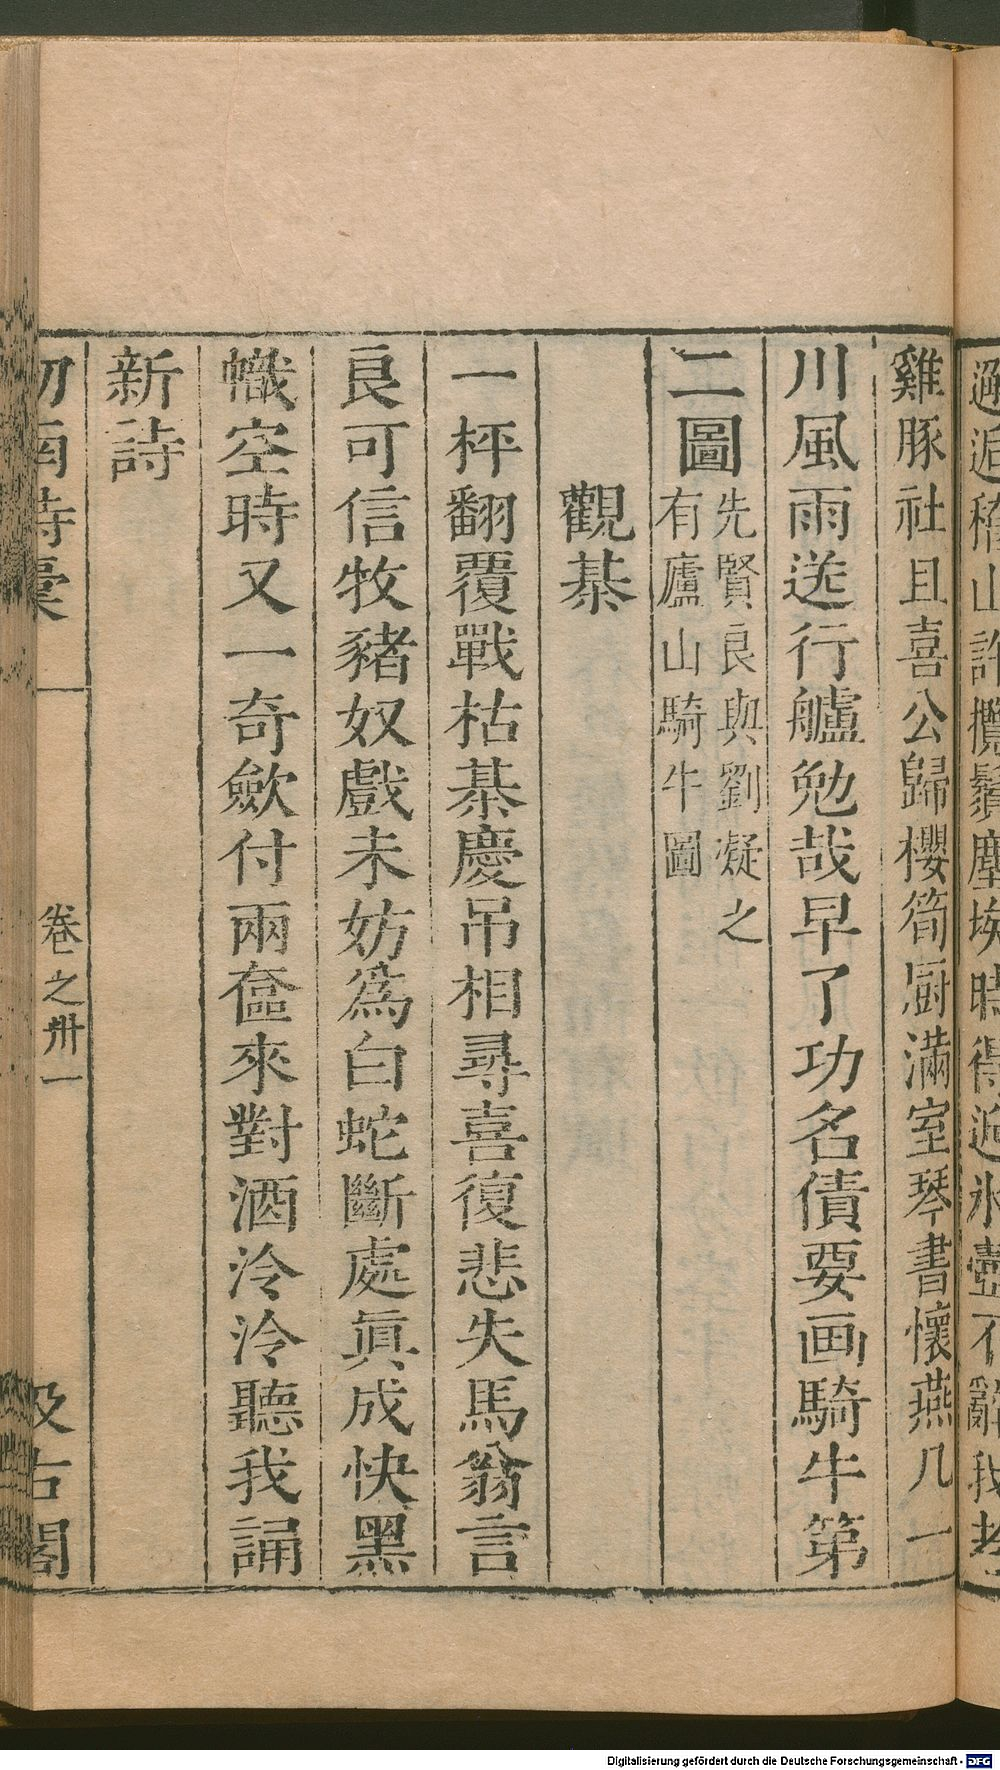 雞豚社且喜公歸櫻筍厨滿室琴書懷燕几一
川風雨送行艫勉哉早了功名債要画騎牛第
二圖先賢良與劉凝之
有廬山騎牛圖
觀棊
一枰翻覆戰枯棊慶吊相尋喜復悲失馬翁言
良可信牧豬奴戲未妨爲白蛇斷處眞成快黑
幟空時又一奇歛付兩奩來對酒泠泠聽我誦
新詩
卷之卅一
Digitalisierung gefördert durch die Deutsche Forschungsgemeinschaft - DFG